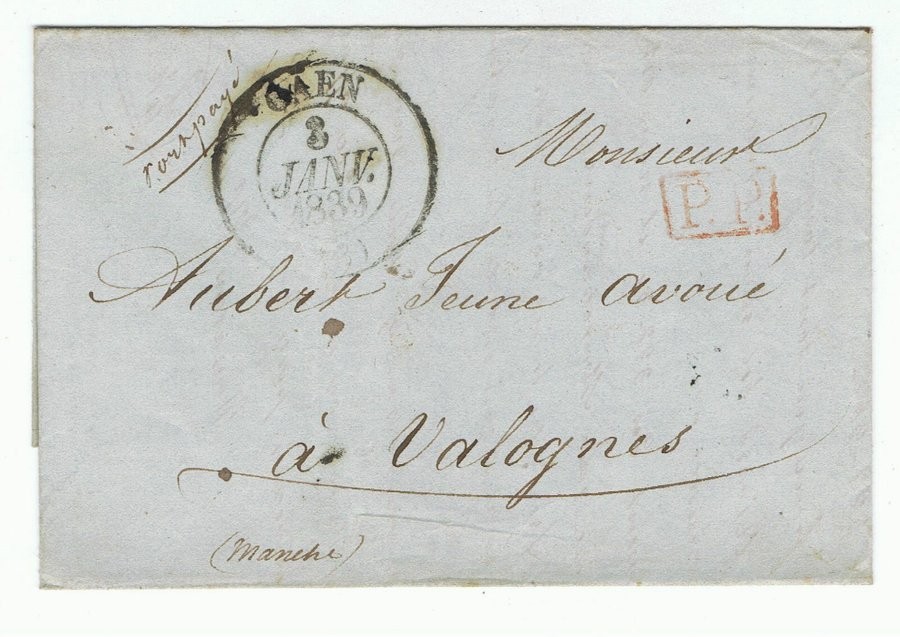 Port payé
CAEN
3
JANV.
1839
Monsieur
P.P.
Aubert Jeune avoué
à Valognes
(Manche)